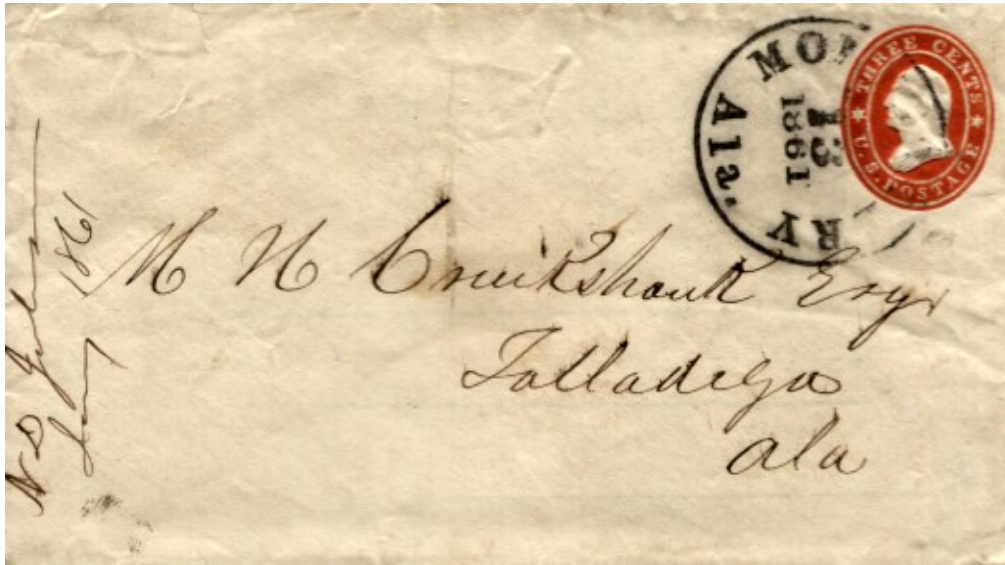 MO RY
13
1861
Ala.
★ THREE CENTS ★
U.S. POSTAGE
M H Cruikshank Esqr
Talladega
Ala
Jany 1861